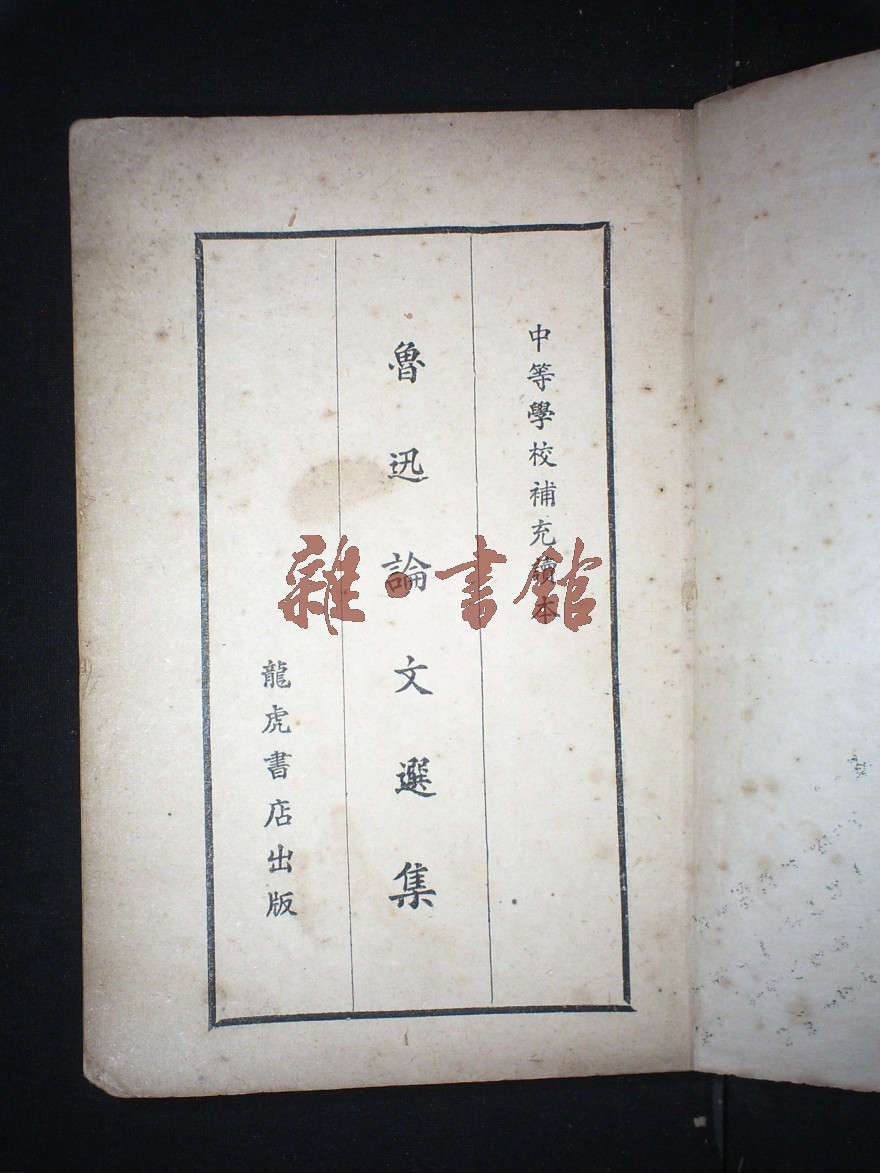 中等學校補充讀本
魯迅論文選集
龍虎書店出版
雜書館